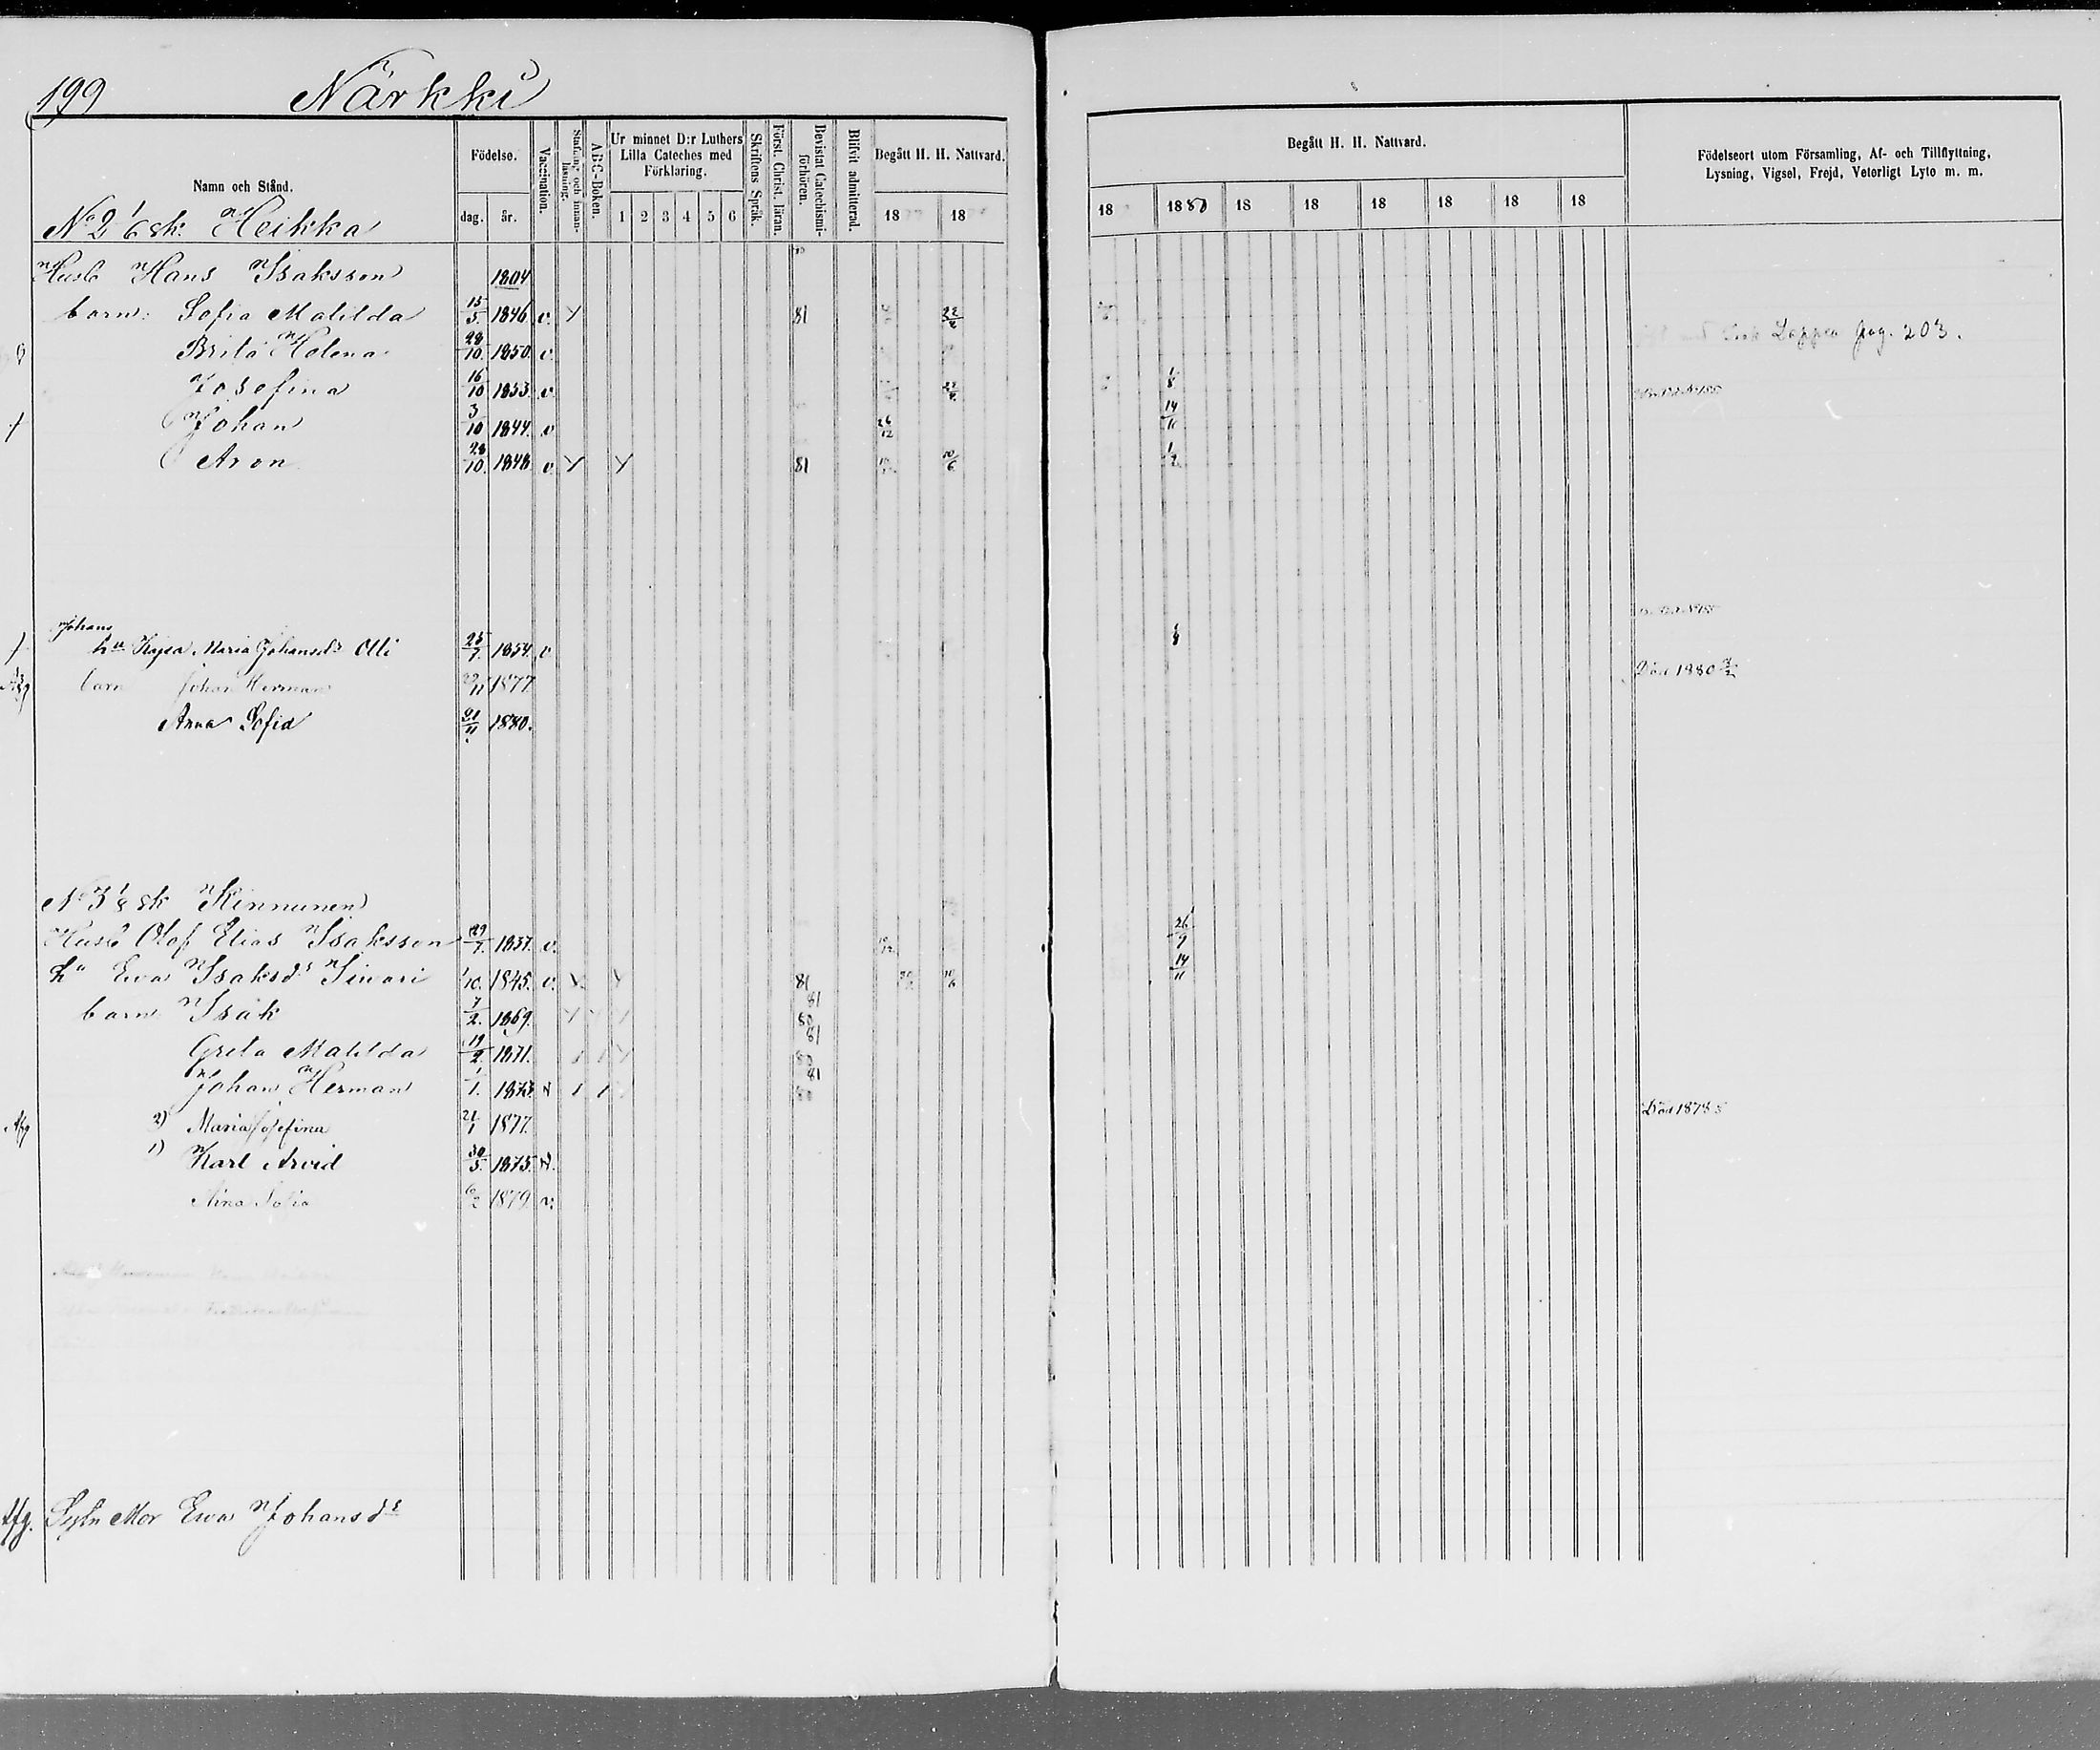 199 Närkki
Namn och Stånd.
Födelse.
dag. år.
Vaccination.
Stafning och innan-läsning.
ABC-Boken.
Ur minnet D:r Luthers Lilla Cateches med Förklaring.
1 2 3 4 5 6
Skriftens Språk.
Först. Christ. läran.
Bevistat Catechismi-förhören.
Blifvit admitterad.
Begått H. H. Nattvard.
18 18
Begått H. H. Nattvard.
18 1880 18 18 18 18 18 18
Födelseort utom Församling, Af- och Tillflyttning,
Lysning, Vigsel, Frejd, Veterligt Lyte m. m.
No 2 1/6 sk. Heikka
Husb Hans Isaksson 1804
barn: Sofia Matilda 15/5. 1846 v. 81 22/4
Brita Helena 28/10. 1850. v. Lappea pag. 203.
Josefina 16/10 1853. v. 1/8
Johan 3/10 1844. v 26/12 14/11
Aron 28/10. 1848 v. 81 10/6 1/2
Johans
hu Kajsa Maria Johansdr Olli 25/7. 1854. v 1/8
barn Johan Herman 29/11 1877. Död 1880
Anna Sofia 21/11 1880.
No 3 1/8 sk Kinnunen
Husb Olof Elias Isaksson 29/7. 1837. v. 26/9
hu Ewa Isaksdr Siwari 1/10. 1845. v. 81 10/6 14/11
barn Isak 7/2. 1869. 80 81
Greta Matilda 19/2. 1871. 80 81
Johan Herman 1/1. 1873. 80 81
Afg 2) Maria Josefina 21/1 1877. Död 1878
1) Karl Arvid 30/5. 1875.
Aina Sofia 6/2 1879. v.
Afg. Sytn Mor Ewa Johansdr